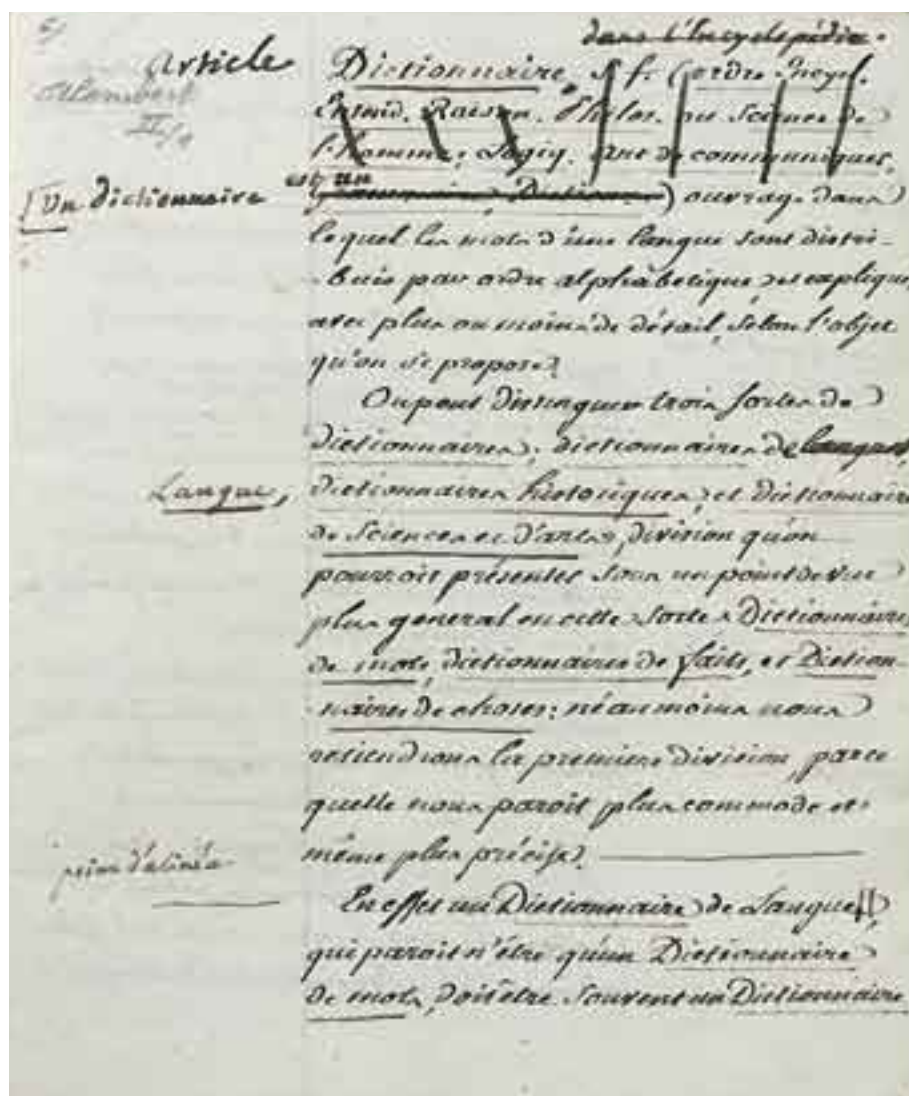 dans l'Encyclopédie.
Article Dictionnaire, s. f. (ordre Encycl.
Entend. Raison. Philos. ou Science de
l'homme; Logiq. Art de communiquer,
Un dictionnaire est un
) ouvrage dans
lequel les mots d'une langue sont distri-
-bués par ordre alphabetique, et expliqués
avec plus ou moins de détail, selon l'objet
qu'on se propose.
On peut distinguer trois sortes de
dictionnaires; dictionnaires de langues,
Langue, dictionnaires historiques, et dictionnaires
de Sciences et d'arts, division qu'on
pourroit présenter sous un point de vue
plus general en cette sorte, Dictionnaires
de mots, dictionnaires de faits, et Diction-
-naires de choses: néanmoins nous
retiendrons la premiere division, parce
quelle nous paroit plus commode et
même plus précise.
point d'alinéa
En effet un Dictionnaire de Langue,
qui paroit n'être qu'un Dictionnaire
de mots, doit être souvent un Dictionnaire